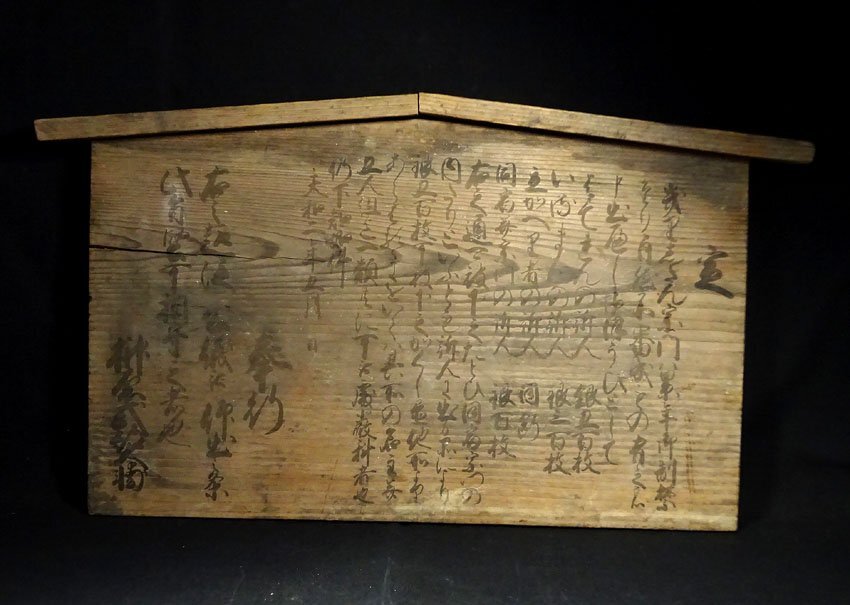 定
きりしたん宗門ハ累年御制禁
たり自然不審成もの有之ハ
申出へし御ほうひとして
はてれんの訴人　銀五百枚
いるまんの訴人　銀三百枚
立かへり者の訴人　同断
同宿并宗門の訴人　銀百枚
右之通可被下之たとひ同宿宗門の
内たりといふとも訴人に出る品により
銀五百枚可被下之かくし置他所より
あらはるゝにおゐてハ其所の名主并
五人組迄一類共に可被處厳科者也
仍下知如件
天和二年五月　日
奉行
右之趣従　公儀被仰出候条
可相守之者也
榊原式部大輔